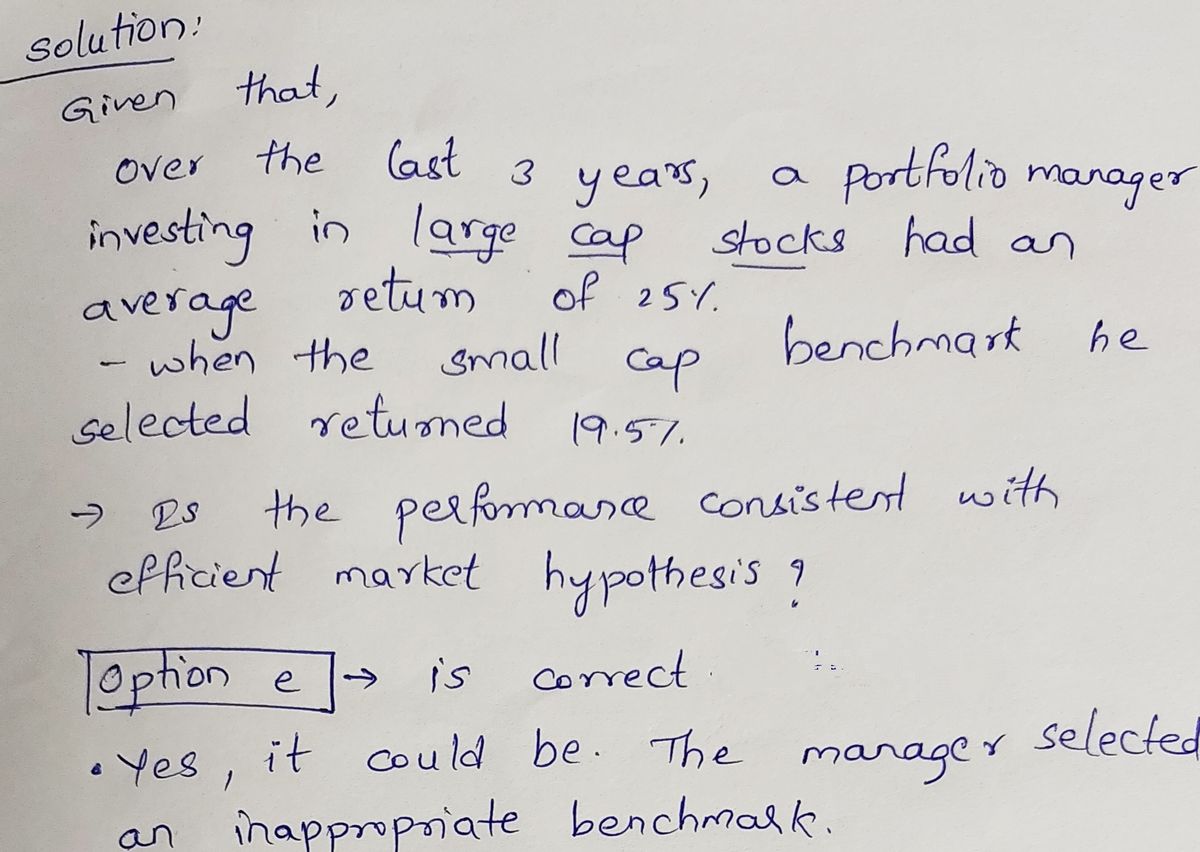 solution:
Given that,
over the last 3 years, a portfolio manager
investing in large cap stocks had an
average return of 25%.
- when the small cap benchmark he
selected returned 19.5%.
→ Is the performance consistent with
efficient market hypothesis ?
Option e → is correct.
• Yes, it could be. The manager selected
an inappropriate benchmark.